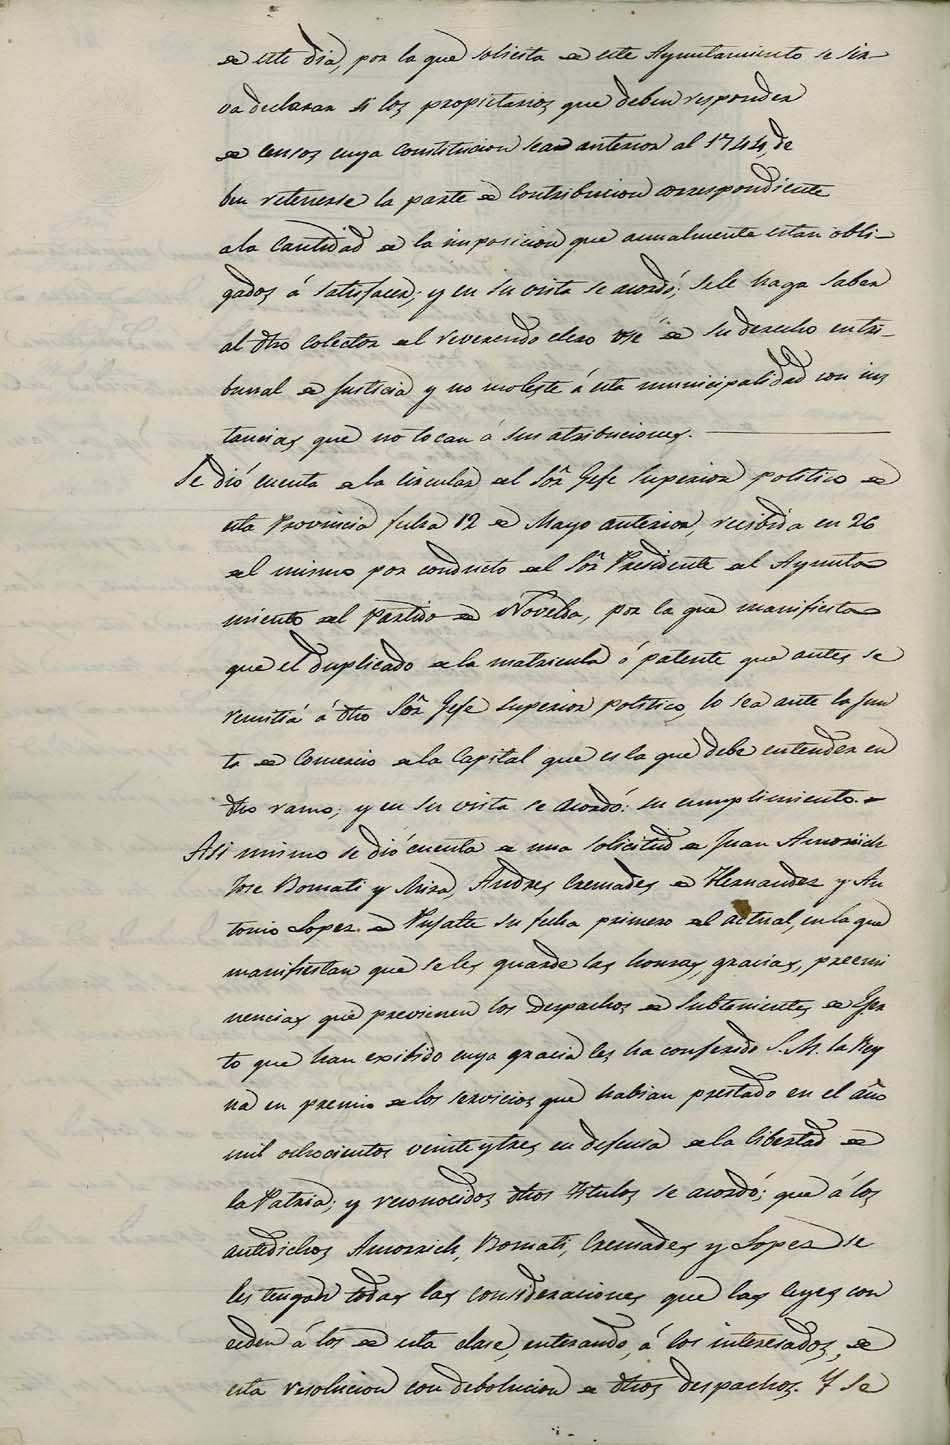 de este dia, por la que solicita de este Ayuntamiento se sir-
va declarar si los propietarios que deben responder
de censos cuya constitucion sea anterior al 1744, de
ben retenerse la parte de contribucion correspondiente
a la cantidad de la imposicion que anualmente estan obli-
gados á satisfacer; y en su vista se acordó; se le haga saber
al dho colector del reverendo clero use de su derecho en tri-
bunal de Justicia y no moleste á esta municipalidad con ins
tancias que no tocan á sus atribuciones.
Se dió cuenta de la circular del Sõr Gefe Superior politico de
esta Provincia fecha 12 de Mayo anterior, recibida en 26
del mismo por conducto del Sõr Presidente del Ayunta
miento del Partido de Novelda, por la que manifiesta
que el duplicado de la matricula ó patente que antes se
remitiá á dho Sõr Gefe Superior politico, lo sea ante la Jun
ta de Comercio de la Capital que es la que debe entender en
dho ramo; y en su vista se acordó: su cumplimiento.
Asi mismo se dió cuenta de una solicitud de Juan Amorich
Jose Bomati y Mira, Andres Cremades de Hernandez y An
tonio Lopez de Pujalte su fecha primero del actual, en la que
manifiestan que se les guarde las honras, gracias, preemi
nencias que previenen los despachos de Subtenientes de Eger
to que han exibido cuya gracia les ha conferido S.M. la Rey
na en premio de los servicios que habian prestado en el año
mil ochocientos veinte y tres en defensa de la libertad de
la Patria; y reconocidos dhos titulos se acordó; que á los
antedichos Amorrich, Bomati, Cremades y Lopez se
les tengan todas las consideraciones que las leyes con
ceden á los de esta clase, enterando, á los interesados, de
esta resolucion con debolucion de dhos despachos. Y se